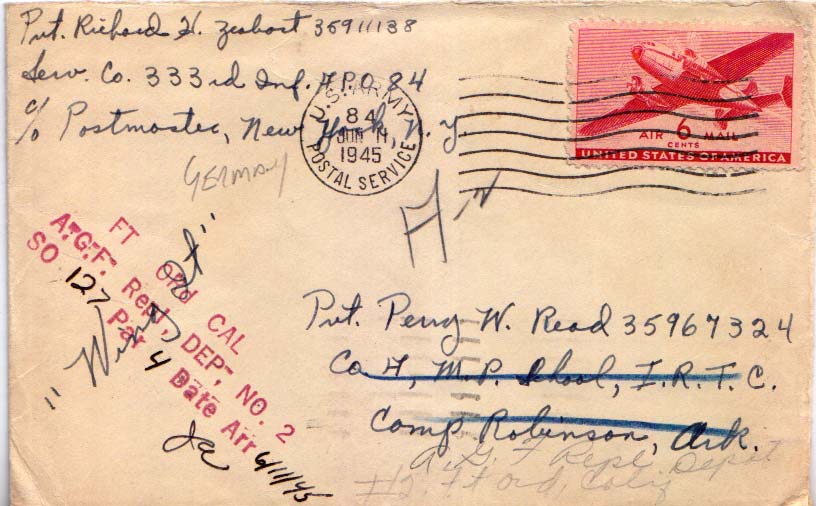 Pvt. Richard H. 35911138
Serv. Co. 333rd Inf. A.P.O. 84
c/o Postmaster, New York, N.Y.
GERMANY
U.S. ARMY
84
JUN 11
1945
POSTAL SERVICE
AIR 6 MAIL
CENTS
UNITED STATES OF AMERICA
FT Ord CAL
A.G.F. Repl. DEP. NO. 2
SO 127 Par 4 Date Arr 6/11/45
Pvt. Perry W. Read 35967324
Co , M.P. School, I.R.T.C.
Camp Robinson, Ark.
A.G.F Repl Depot
#2. Ft Ord, Calif